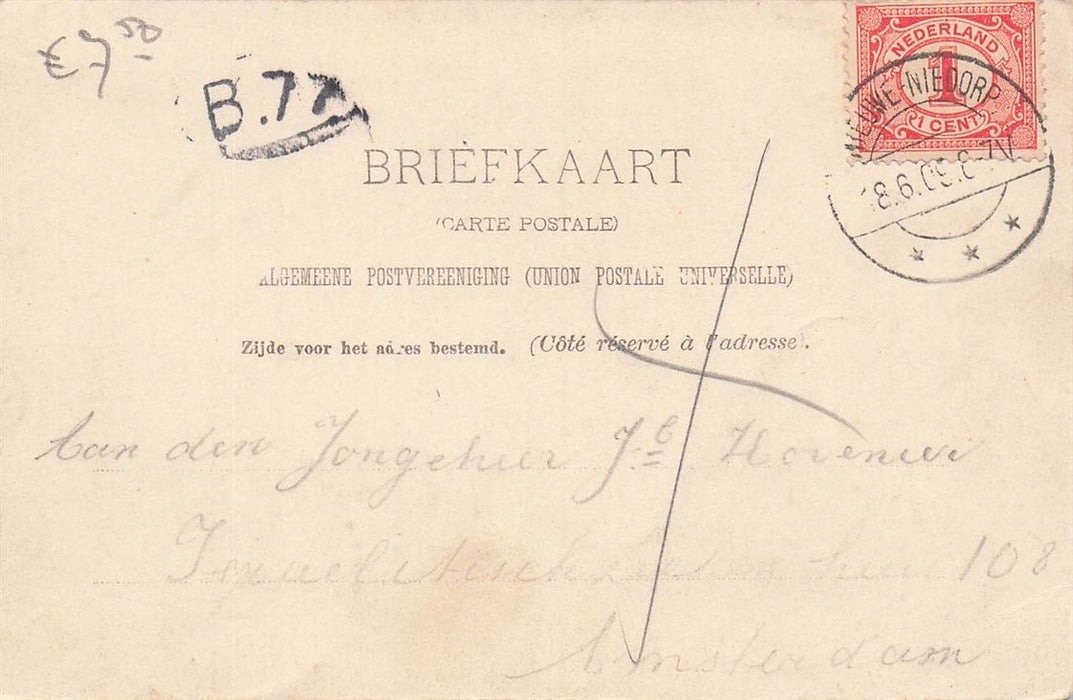 € 7 50
B.77
NEDERLAND
1
(1 CENT)
NIEUWE-NIEDORP
18.6.09.6-7V
BRIEFKAART
(CARTE POSTALE)
ALGEMEENE POSTVEREENIGING (UNION POSTALE UNIVERSELLE)
Zijde voor het adres bestemd. (Côté réservé à l'adresse).
Aan den Jongeheer Jb Hovenier
Israelitisch 108
Amsterdam